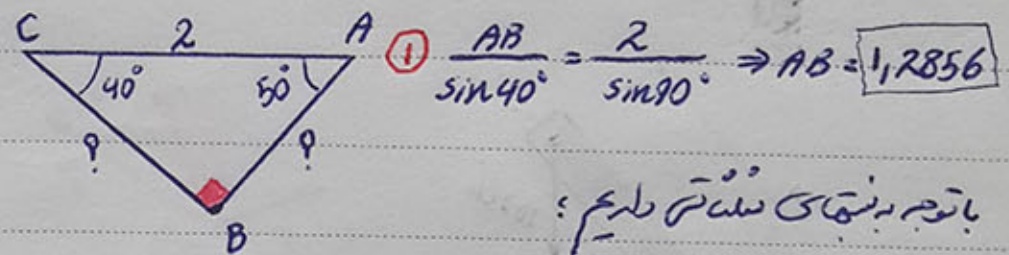 C 2 A
① AB/sin40° = 2/sin90° ⇒ AB = 1,2856
40° 50°
? ?
B
با توجه به نسبتهای مثلثاتی داریم :